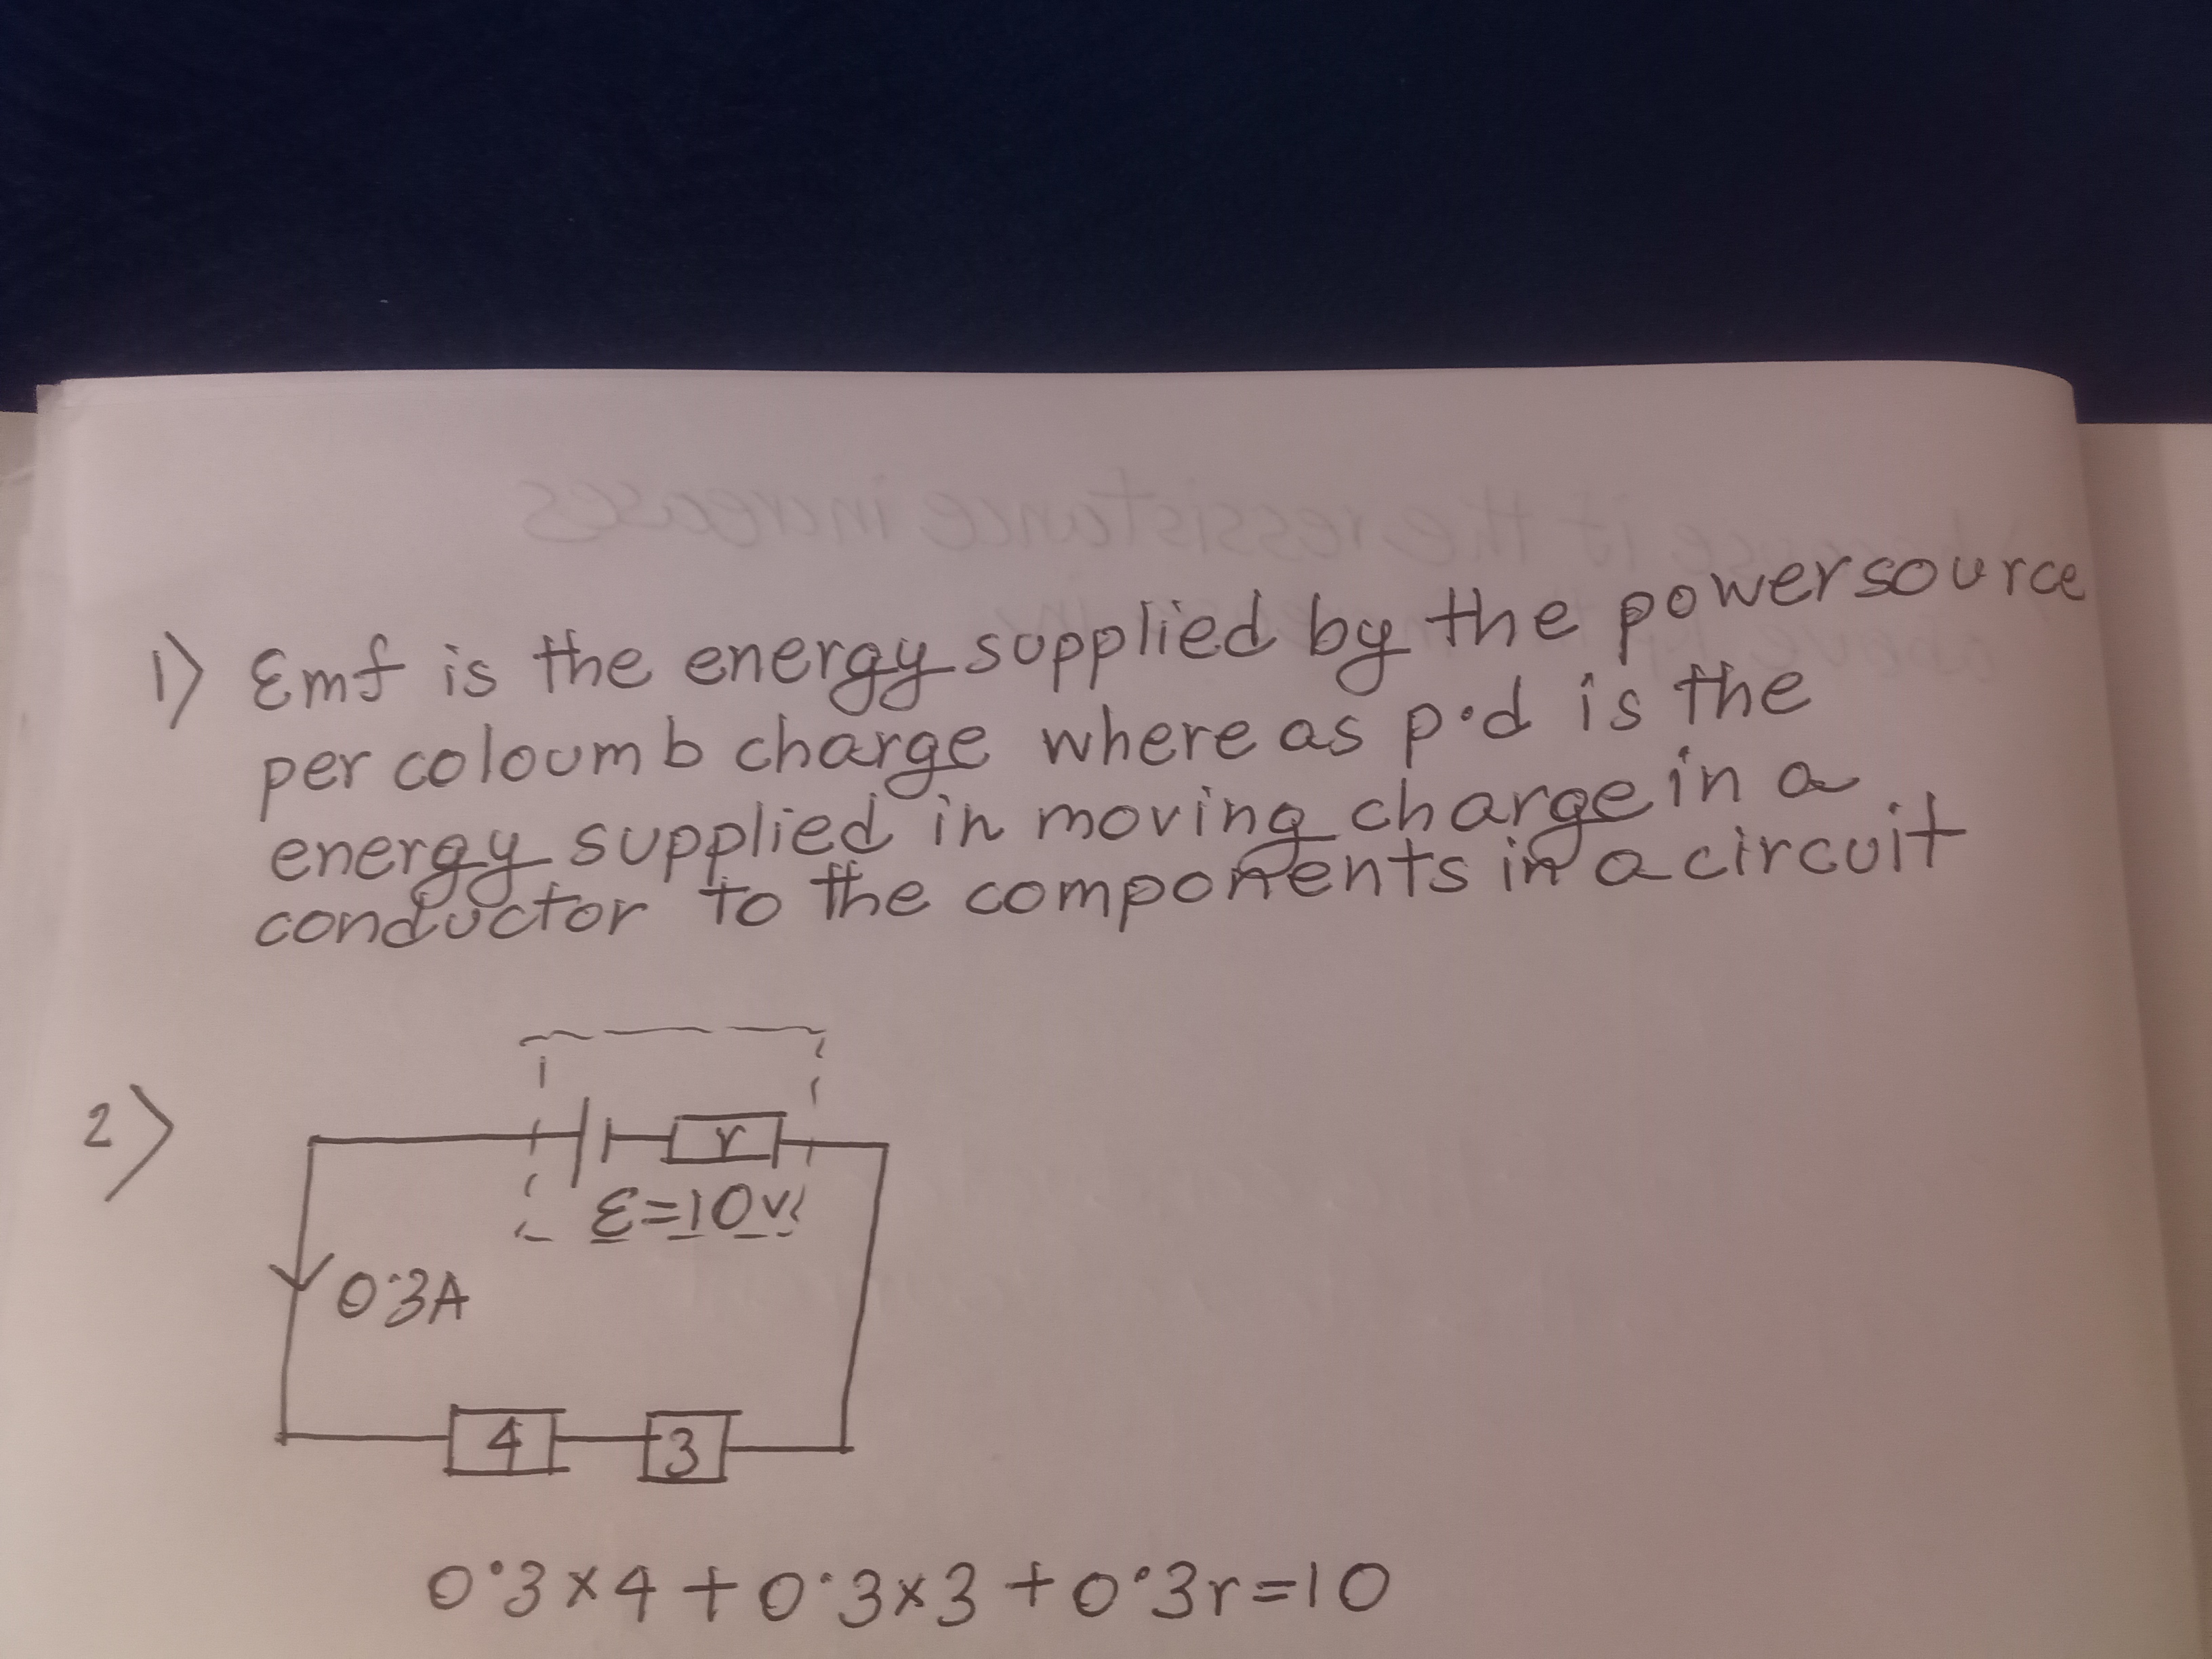 1) Emf is the energy supplied by the power source
per coloumb charge where as p·d is the
energy supplied in moving charge in a
conductor to the components in a circuit
2)
r
ε=10v
0·3A
4 3
0·3×4+0·3×3+0·3r=10